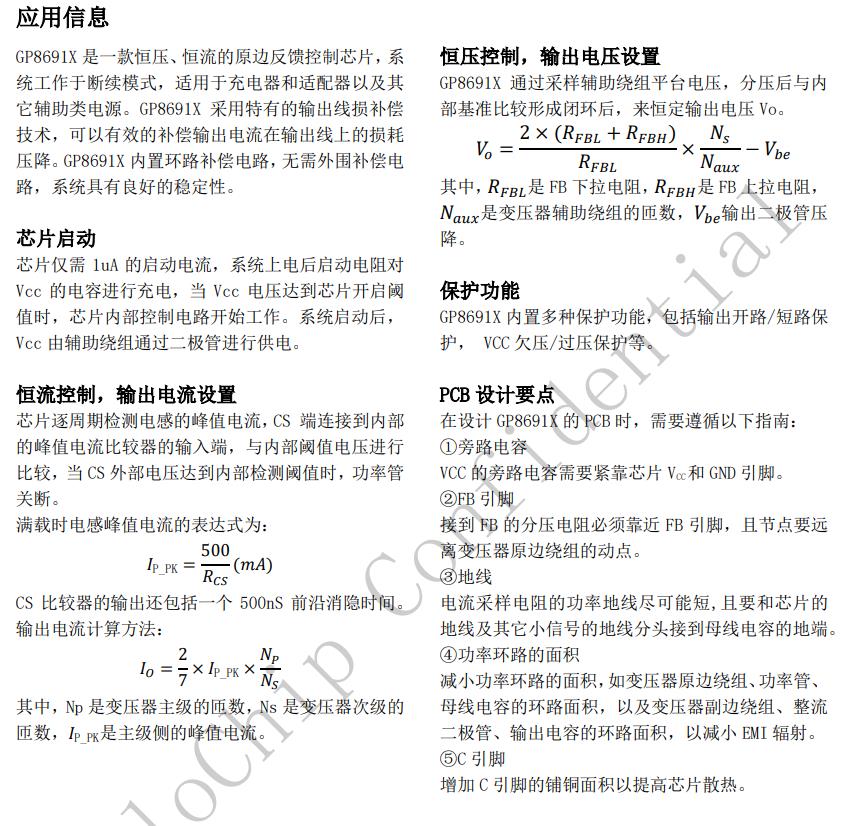 应用信息
GP8691X 是一款恒压、恒流的原边反馈控制芯片,系
统工作于断续模式，适用于充电器和适配器以及其
它辅助类电源。GP8691X 采用特有的输出线损补偿
技术，可以有效的补偿输出电流在输出线上的损耗
压降。GP8691X 内置环路补偿电路,无需外围补偿电
路，系统具有良好的稳定性。
芯片启动
芯片仅需 1uA 的启动电流，系统上电后启动电阻对
Vcc 的电容进行充电，当 Vcc 电压达到芯片开启阈
值时，芯片内部控制电路开始工作。系统启动后，
Vcc 由辅助绕组通过二极管进行供电。
恒流控制，输出电流设置
芯片逐周期检测电感的峰值电流,CS 端连接到内部
的峰值电流比较器的输入端，与内部阈值电压进行
比较,当 CS 外部电压达到内部检测阈值时,功率管
关断。
满载时电感峰值电流的表达式为：
I_{P_PK} = 500/R_{CS} (mA)
CS 比较器的输出还包括一个 500nS 前沿消隐时间。
输出电流计算方法：
I_O = 2/7 × I_{P_PK} × N_P/N_S
其中，Np 是变压器主级的匝数,Ns 是变压器次级的
匝数，I_{P_PK}是主级侧的峰值电流。
恒压控制，输出电压设置
GP8691X 通过采样辅助绕组平台电压，分压后与内
部基准比较形成闭环后，来恒定输出电压 Vo。
V_o = 2 × (R_{FBL} + R_{FBH})/R_{FBL} × N_s/N_{aux} − V_{be}
其中，R_{FBL}是 FB 下拉电阻，R_{FBH}是 FB 上拉电阻，
N_{aux}是变压器辅助绕组的匝数，V_{be}输出二极管压
降。
保护功能
GP8691X 内置多种保护功能,包括输出开路/短路保
护， VCC 欠压/过压保护等。
PCB 设计要点
在设计 GP8691X 的 PCB 时，需要遵循以下指南：
①旁路电容
VCC 的旁路电容需要紧靠芯片 V_{CC}和 GND 引脚。
②FB 引脚
接到 FB 的分压电阻必须靠近 FB 引脚，且节点要远
离变压器原边绕组的动点。
③地线
电流采样电阻的功率地线尽可能短,且要和芯片的
地线及其它小信号的地线分头接到母线电容的地端。
④功率环路的面积
减小功率环路的面积,如变压器原边绕组、功率管、
母线电容的环路面积，以及变压器副边绕组、整流
二极管、输出电容的环路面积，以减小 EMI 辐射。
⑤C 引脚
增加 C 引脚的铺铜面积以提高芯片散热。
loChip Confidential